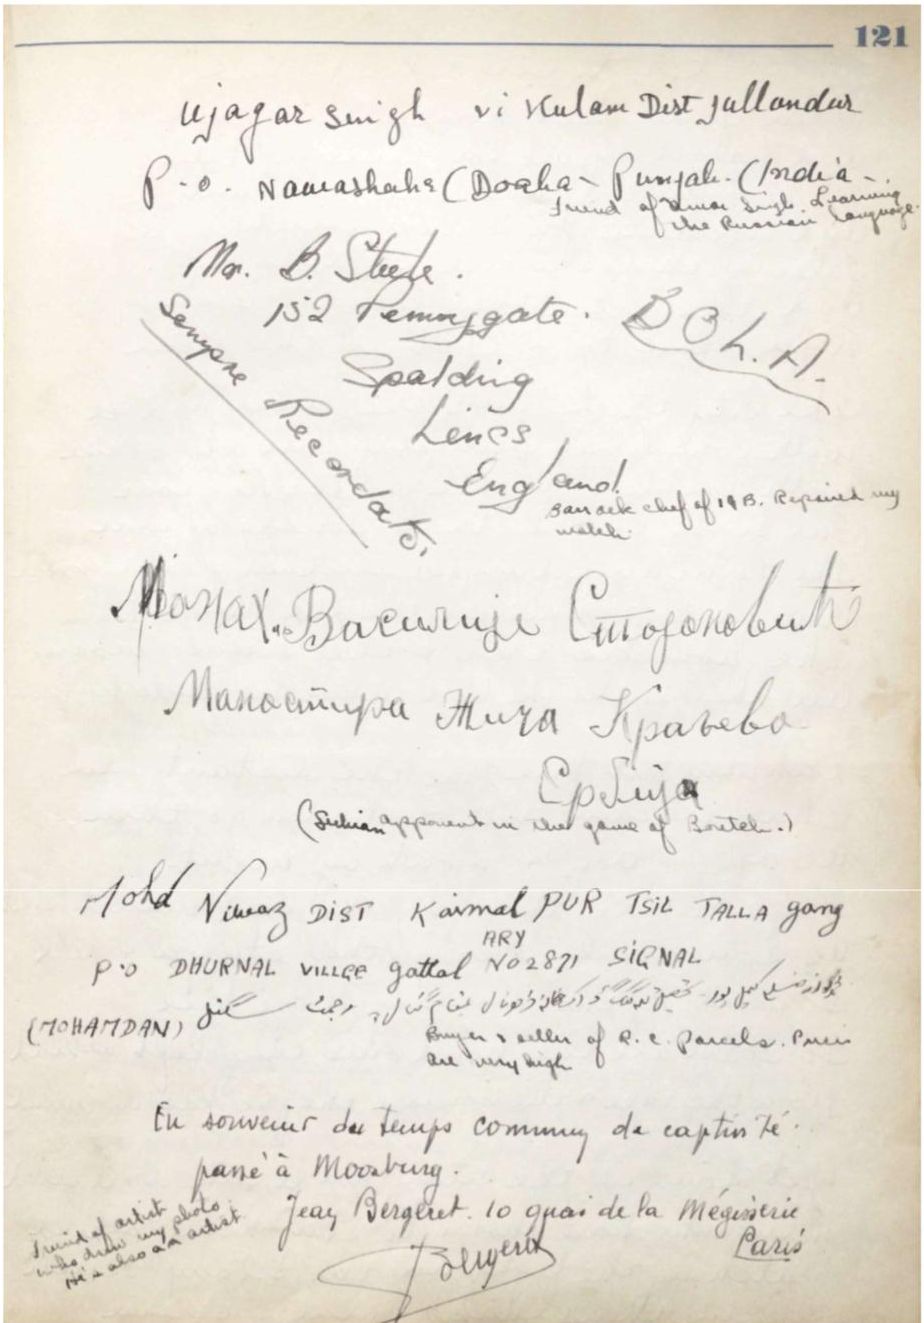 121
Ujagar Singh vi Kulam Dist Jullandur
P.O. Nawashahr (Doaba - Punjab. (India -
friend of Amar Singh. Learning
the Russian language.
Mr. B. Steele.
152 Pennygate.
Spalding
Lincs
England
Sempre Recordato.
B O L. A.
Barrack chef of 19 B. Repaired my
watch.
Монах. Василије Стојановић
Манастира Жича Краљево
Србија
(Serbian opponent in the game of .)
Mohd Nawaz DIST Kaimal PUR TSIL TALLA gang
P.O DHURNAL VILLGE gattal ARY NO 2871 SIGNAL
(MOHAMDAN)
Buyer & seller of R.C. Parcels. Prices
are very high
En souvenir du temps commun de captivité
passé à Moosburg.
Jean Bergeret. 10 quai de la Mégisserie
Paris
Bergeret
Friend of artist
who drew my photo.
He is also an artist